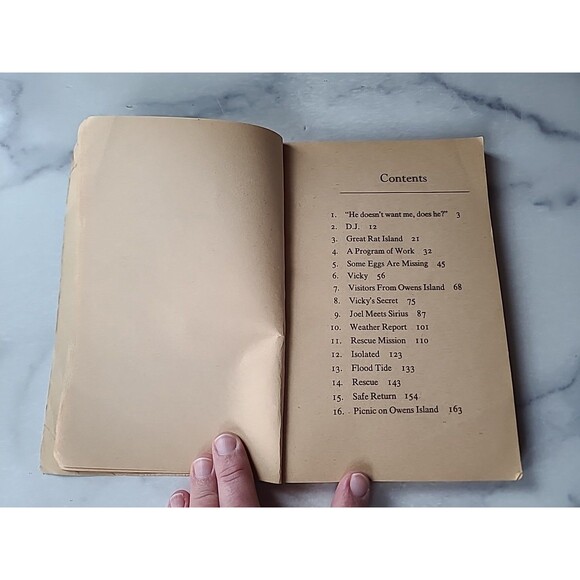 Contents
1. "He doesn't want me, does he?" 3
2. D.J. 12
3. Great Rat Island 21
4. A Program of Work 32
5. Some Eggs Are Missing 45
6. Vicky 56
7. Visitors From Owens Island 68
8. Vicky's Secret 75
9. Joel Meets Sirius 87
10. Weather Report 101
11. Rescue Mission 110
12. Isolated 123
13. Flood Tide 133
14. Rescue 143
15. Safe Return 154
16. Picnic on Owens Island 163